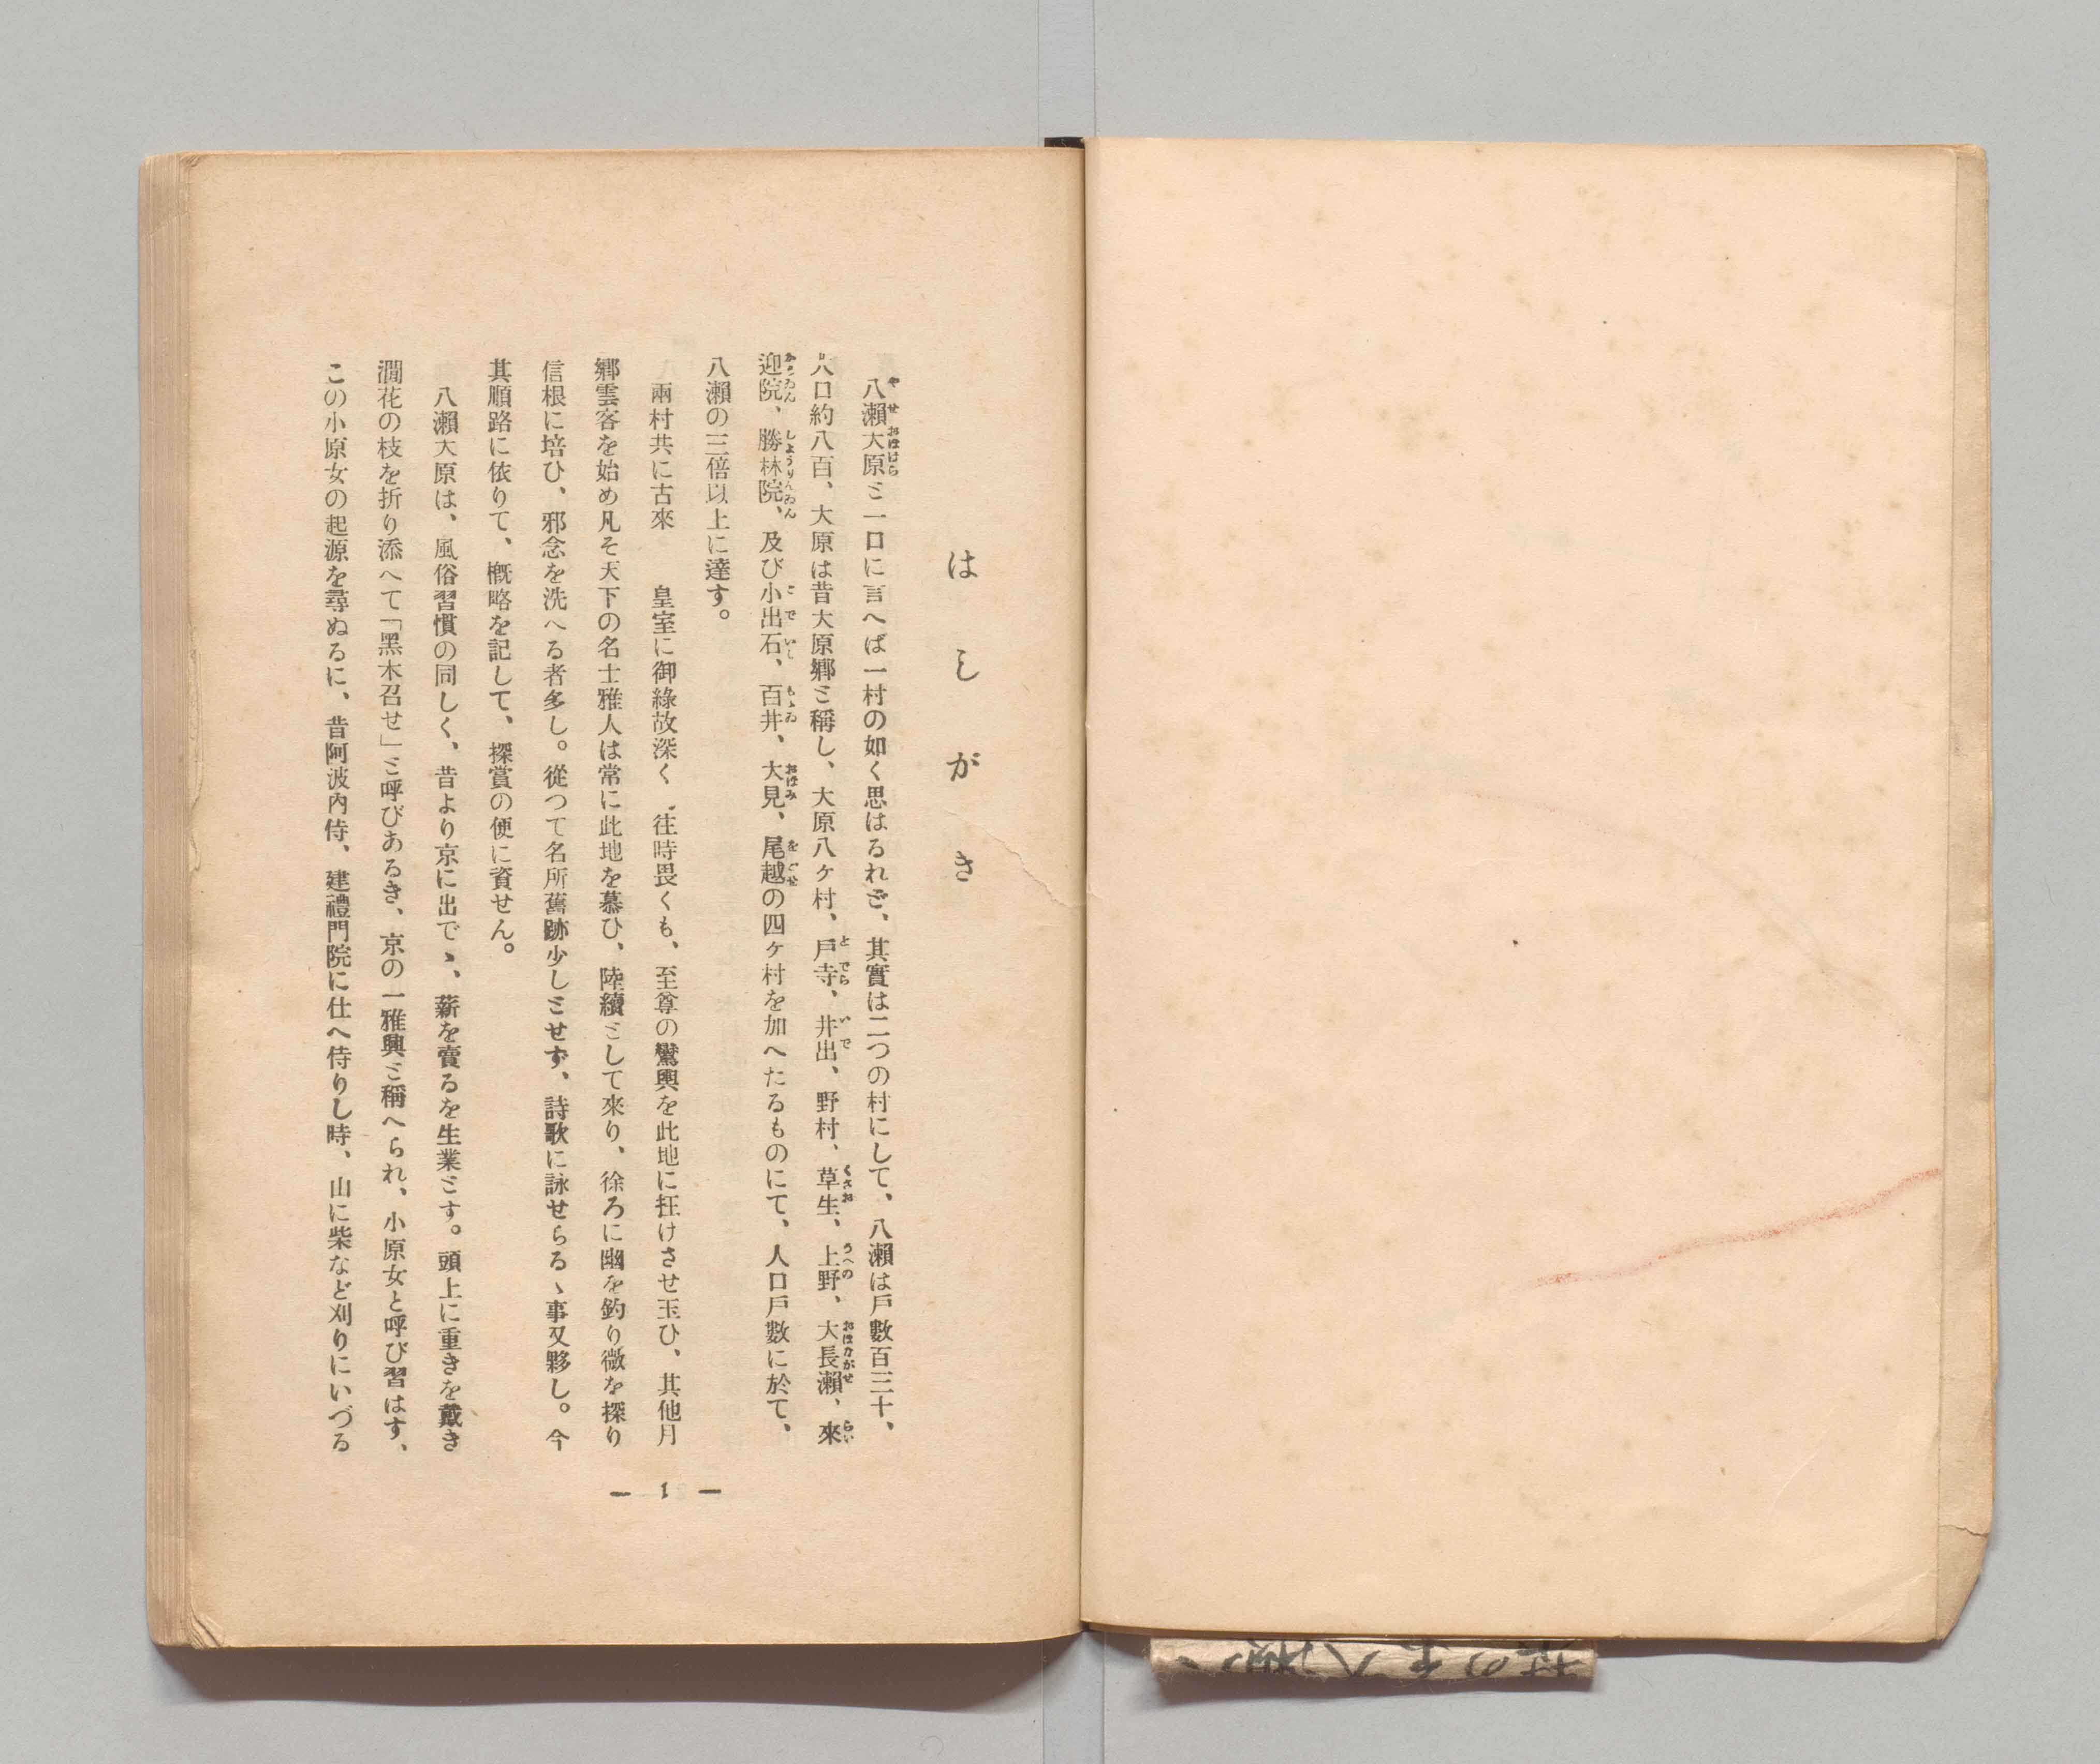 はしがき
八瀬大原と一口に言へば一村の如く思はるれど、其實は二つの村にして、八瀬は戸數百三十、
人口約八百、大原は昔大原郷と稱し、大原八ヶ村、戸寺、井出、野村、草生、上野、大長瀬、來
迎院、勝林院、及び小出石、百井、大見、尾越の四ヶ村を加へたるものにて、人口戸數に於て、
八瀬の三倍以上に達す。
兩村共に古來　皇室に御緣故深く、往時畏くも、至尊の鸞輿を此地に抂けさせ玉ひ、其他月
郷雲客を始め凡そ天下の名士雅人は常に此地を慕ひ、陸續として來り、徐ろに幽を釣り微を探り
信根に培ひ、邪念を洗へる者多し。從つて名所舊跡少しとせず、詩歌に詠せらるゝ事又夥し。今
其順路に依りて、概略を記して、探賞の便に資せん。
八瀬大原は、風俗習慣の同しく、昔より京に出でゝ、薪を賣るを生業とす。頭上に重きを戴き
澗花の枝を折り添へて「黑木召せ」と呼びあるき、京の一雅興と稱へられ、小原女と呼び習はす、
この小原女の起源を尋ぬるに、昔阿波內侍、建禮門院に仕へ侍りし時、山に柴など刈りにいづる
— 1 —